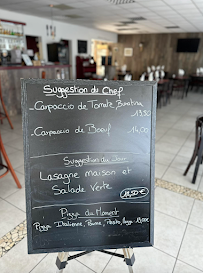 Suggestion du Chef
- Carpaccio de Tomate, Burratina
13,50
- Carpaccio de Boeuf 14,00
Suggestion du Jour
Lasagne maison et
Salade Verte 14,50 €
Pizza du Moment
Pizza Italienne,